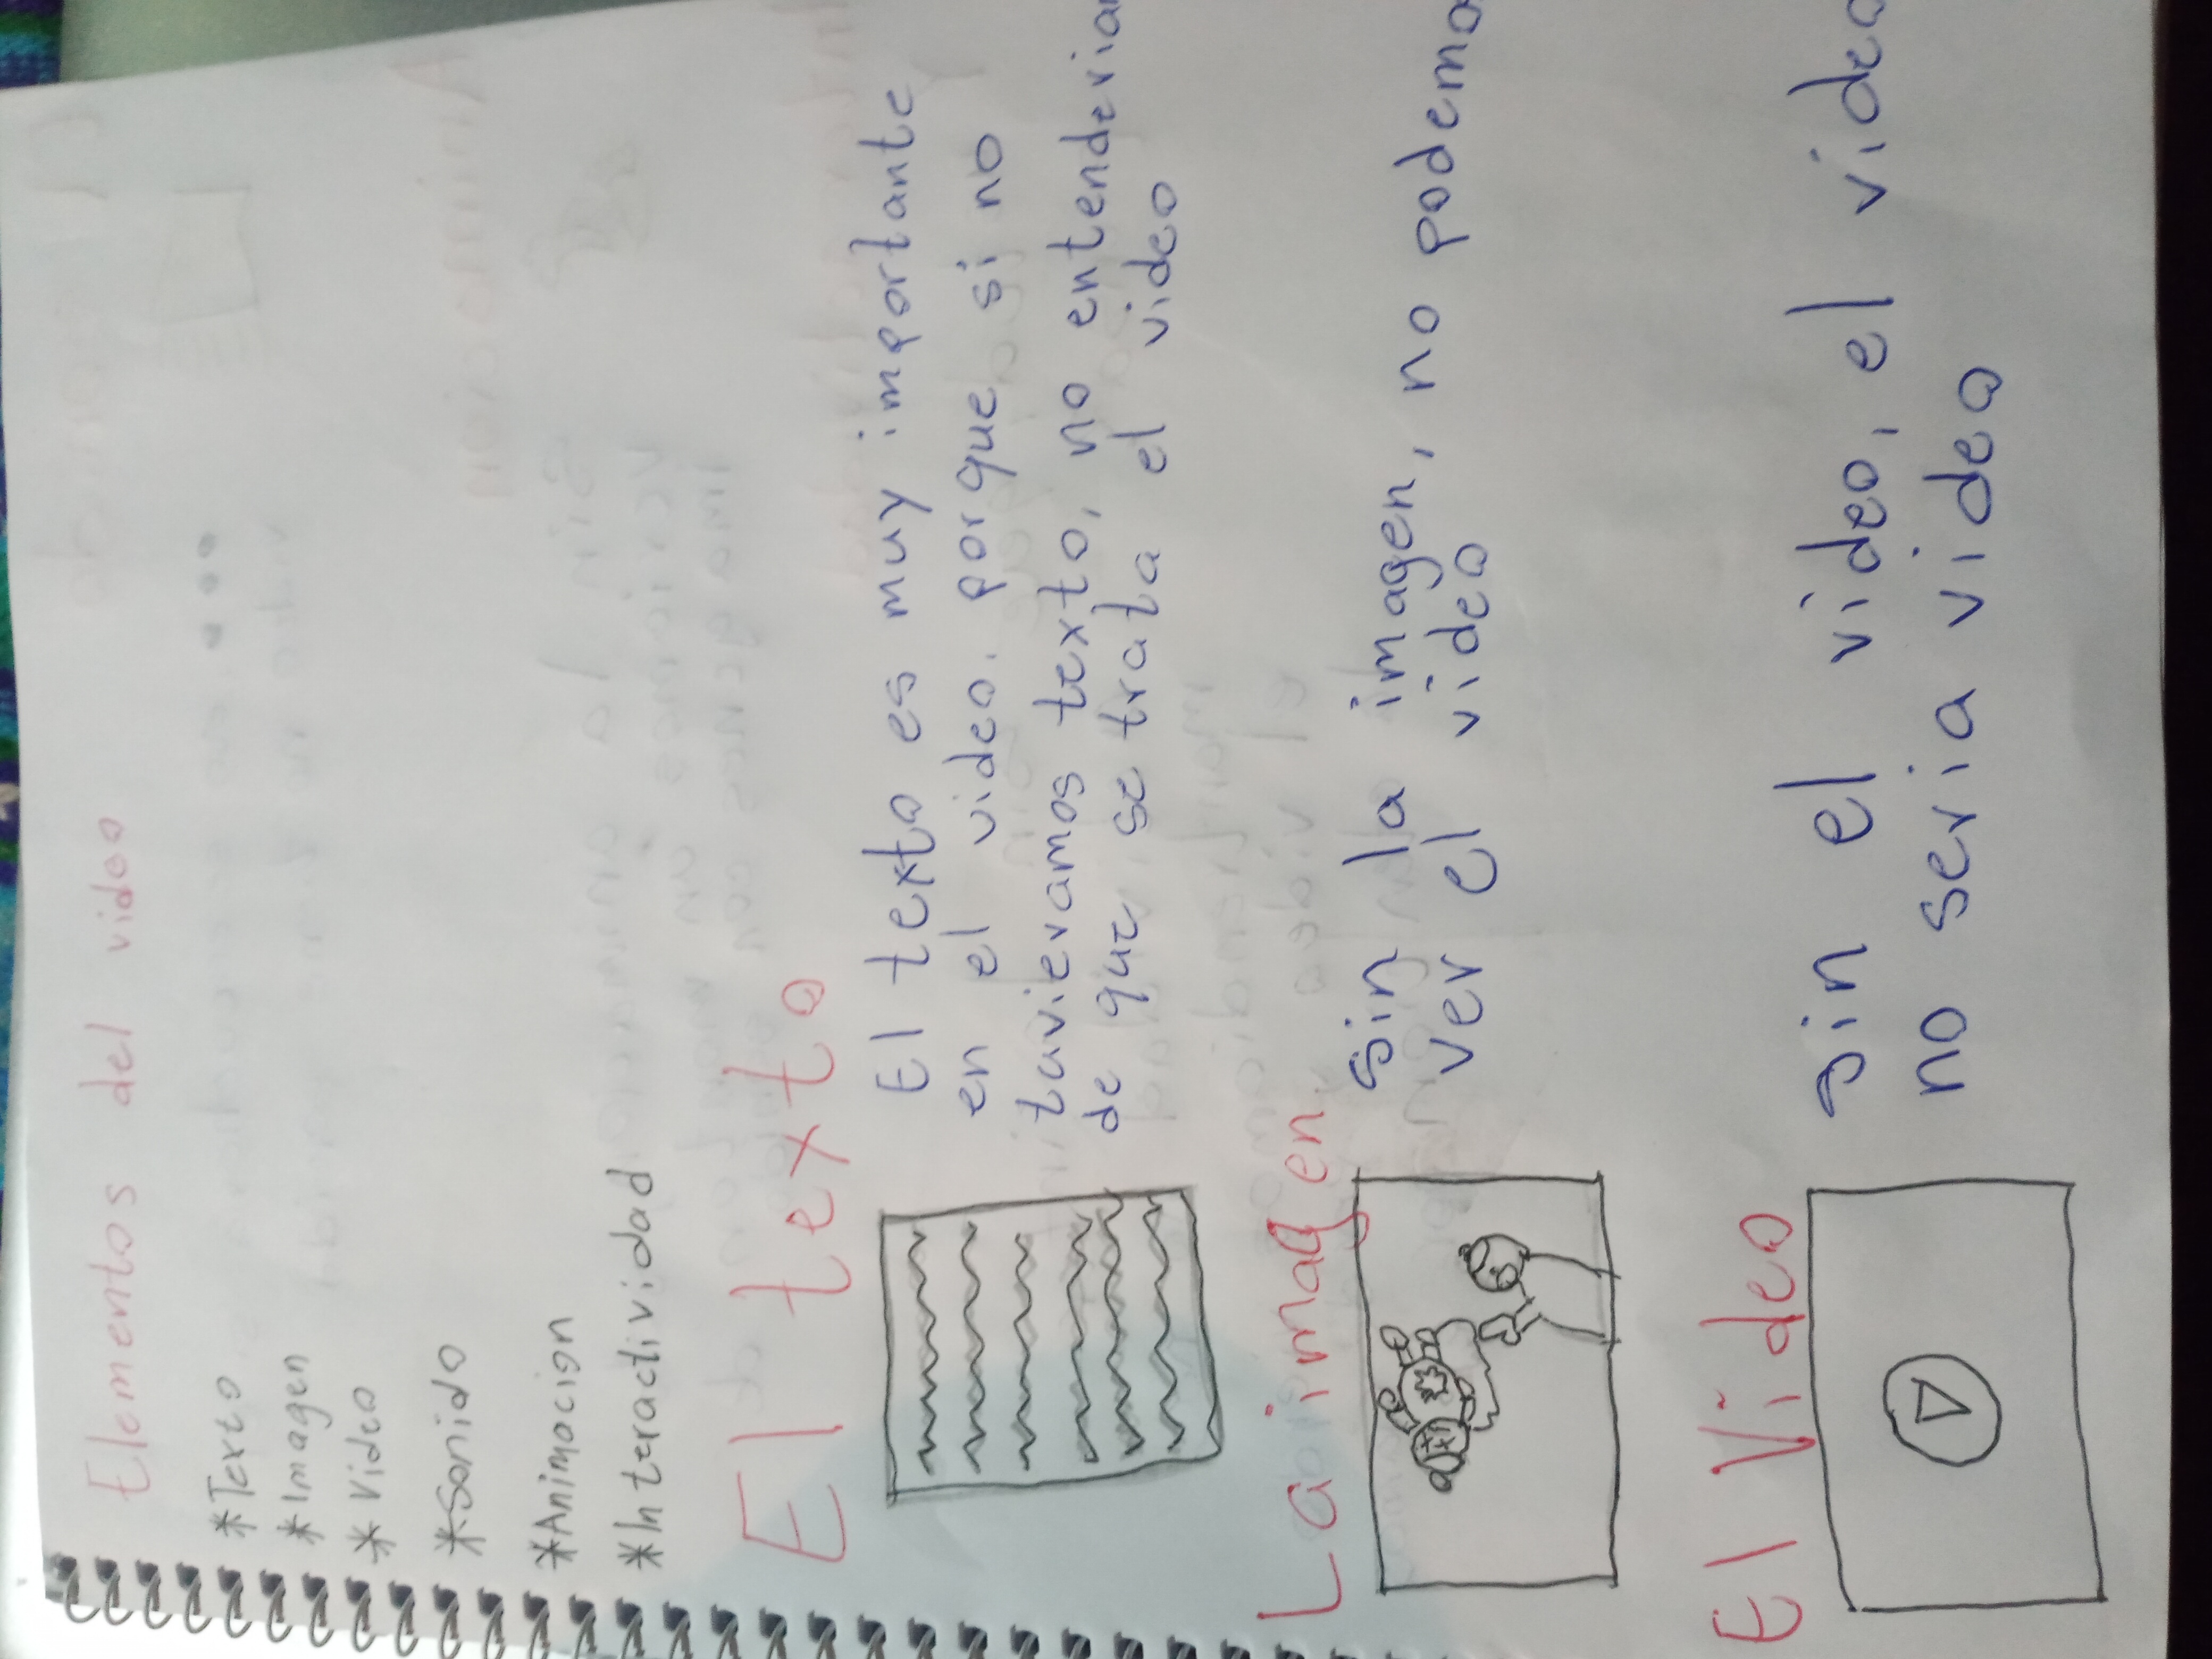 Elementos del video
*Texto
*Imagen
*Video
*Sonido
*Animacion
*Interactividad
El texto
El texto es muy importante
en el video. porque si no
tuvieramos texto, no entenderia
de que se trata el video
La imagen
Sin la imagen, no podemo
ver el video
El Video
Sin el video, el video
no seria video